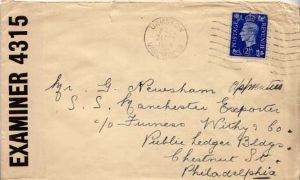 EXAMINER 4315
POSTAGE REVENUE
Mr. G. Newsham Apprentice
S.S. Manchester Exporter
c/o Furness Withy & Co.
Public Ledger Bldgs.
Chestnut St.
Philadelphia